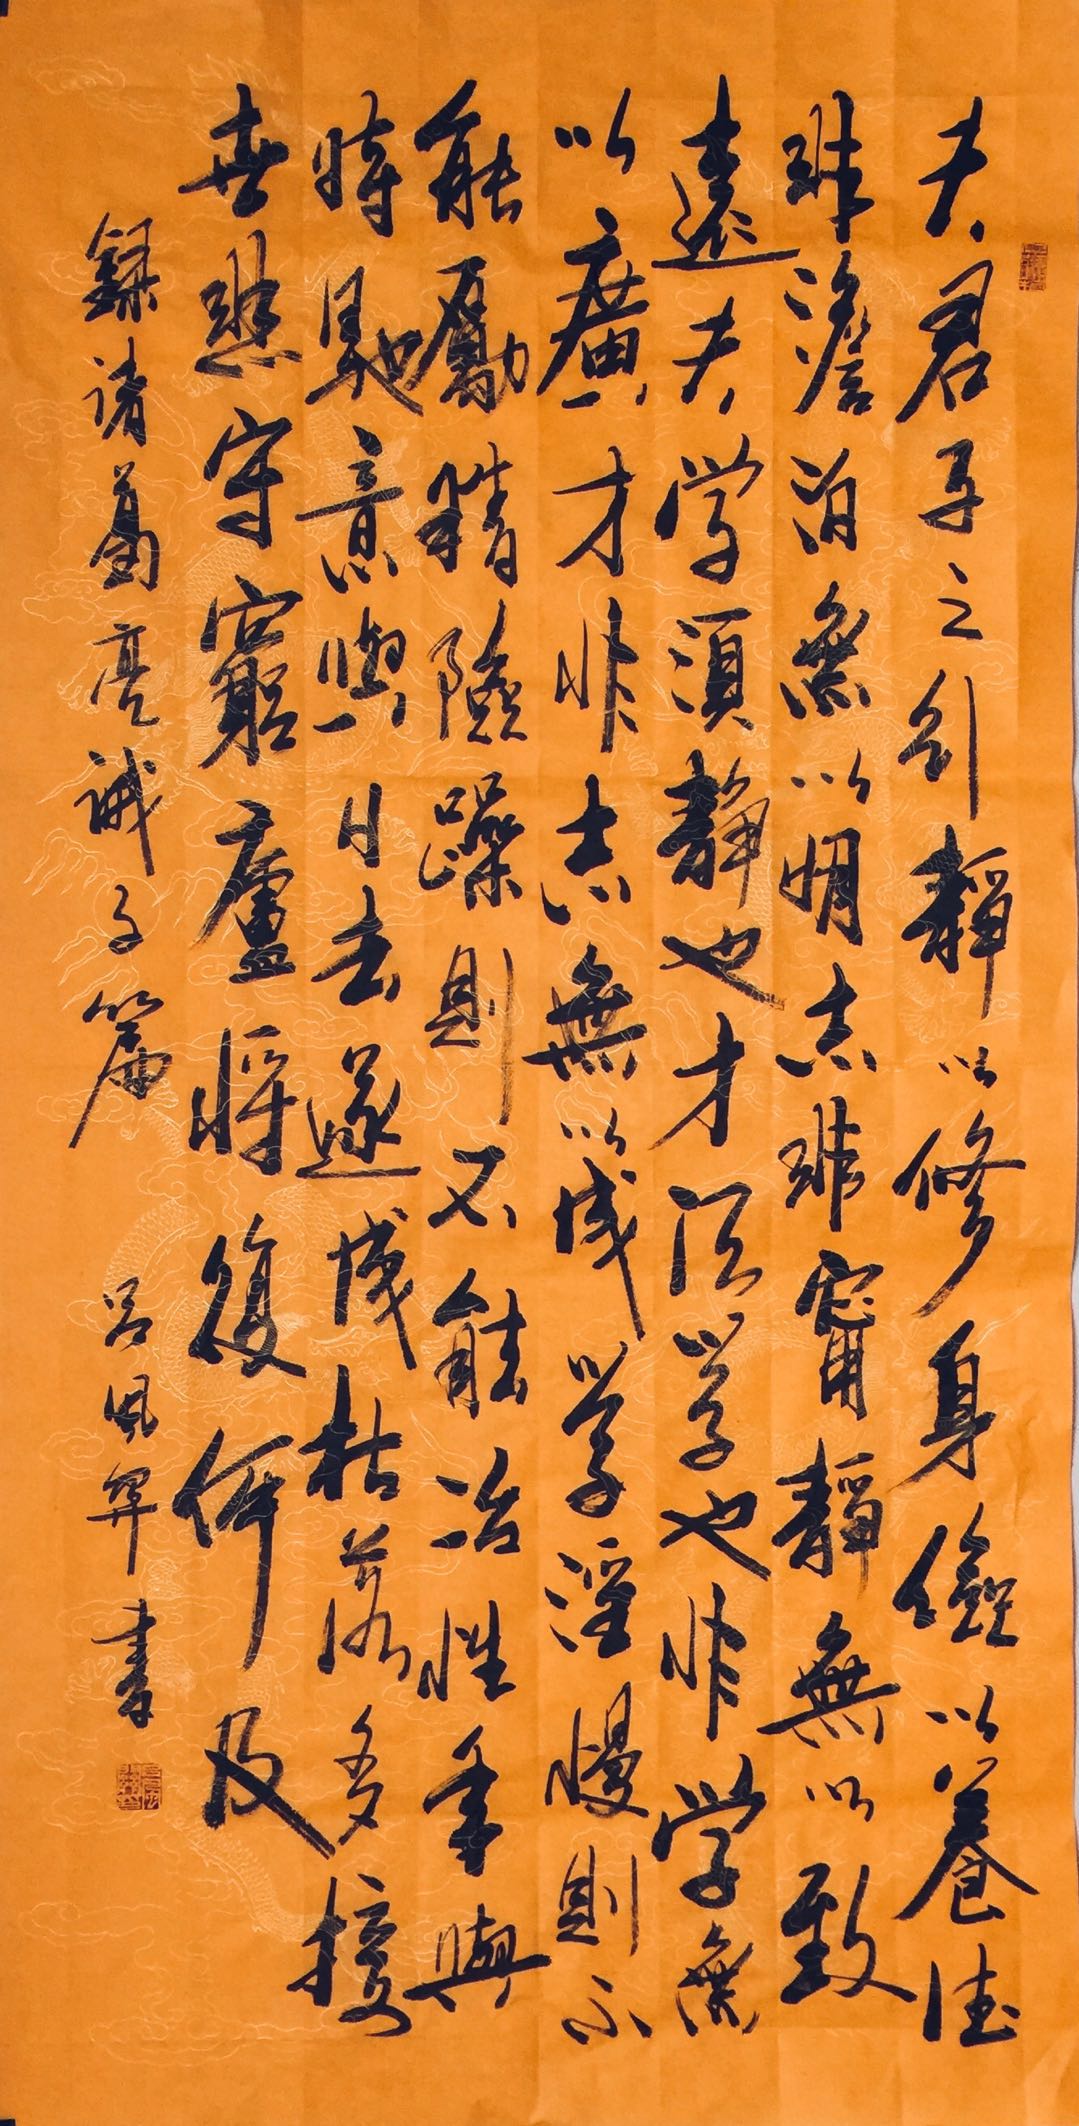 夫君子之行靜以修身儉以養德
非澹泊無以明志非甯靜無以致
遠夫学須靜也才須学也非学無
以廣才非志無以成学淫慢則不
能勵精險躁則不能冶性年與
時馳意與日去遂成枯落多接
世悲守窮廬將復何及
錄諸葛亮誡子篇 呂風 書